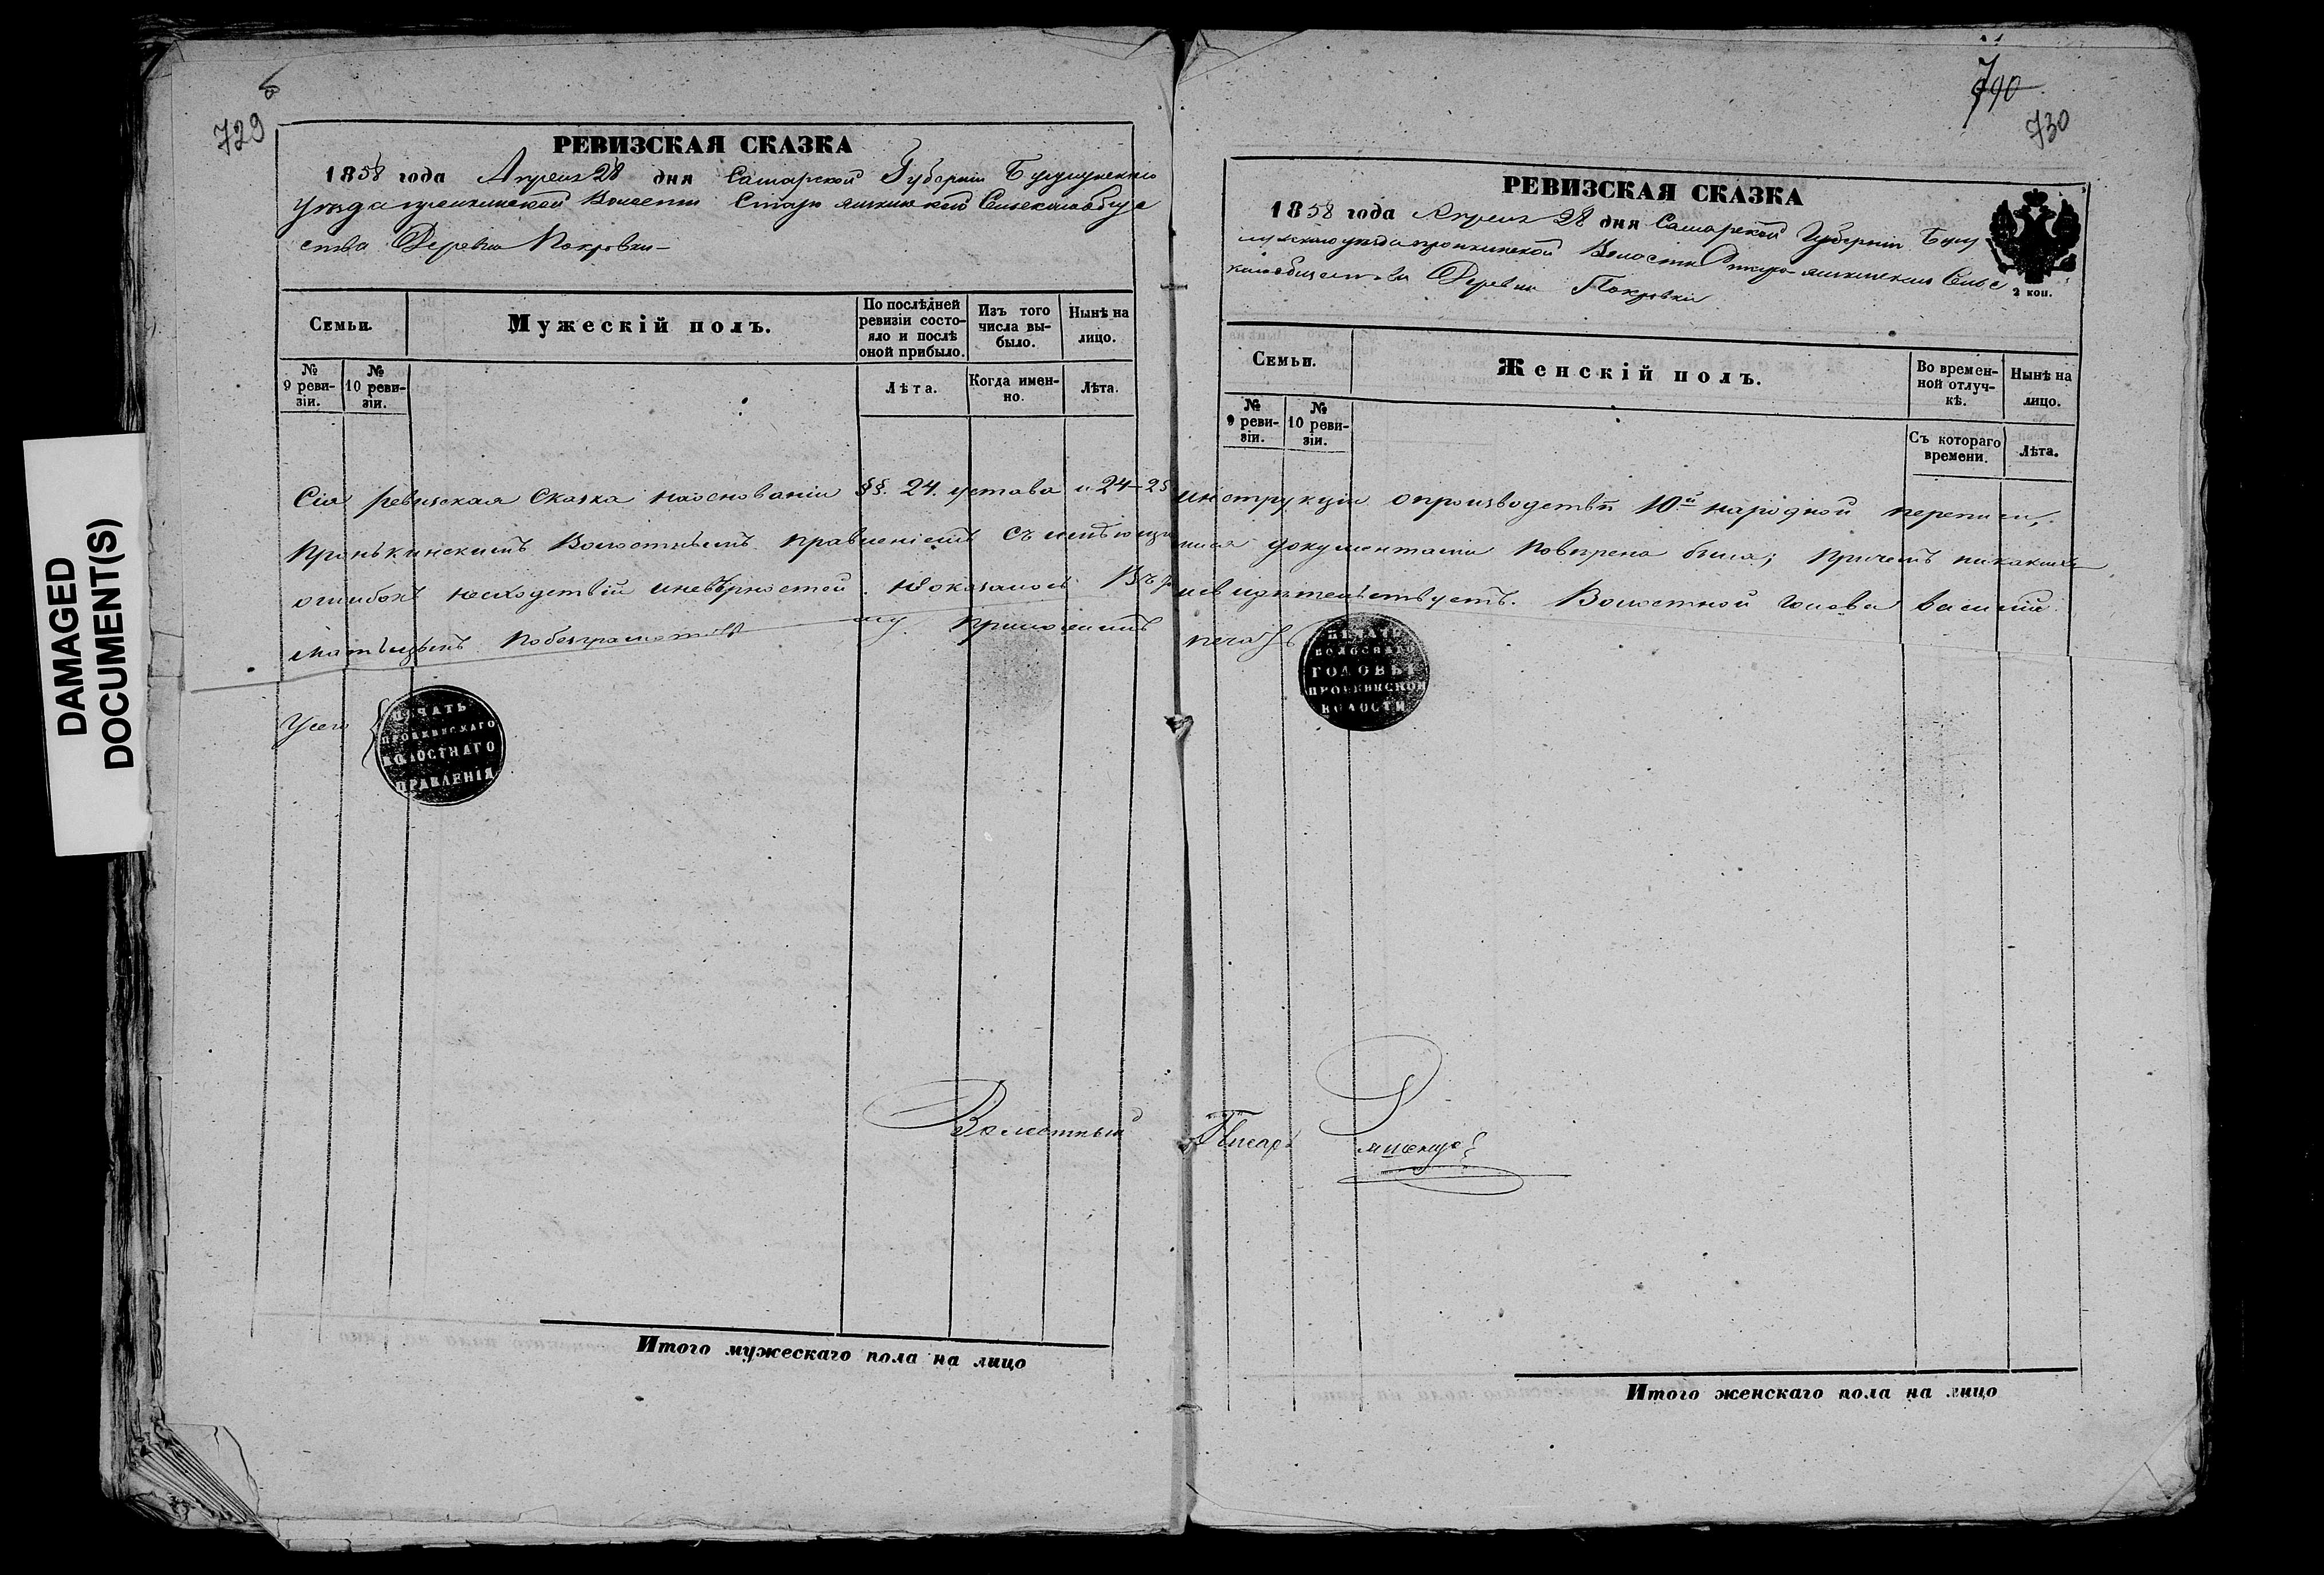 729
РЕВИЗСКАЯ СКАЗКА
1858 года Апреля 28 дня Самарской Губернии Бугульминского
Уезда Пронькинской Волости Старо
ства Деревни Покровки
Семьи.
Мужескій полъ.
По послѣдней ревизіи состояло и послѣ оной прибыло.
Изъ того числа выбыло.
Нынѣ на лицо.
№ 9 ревизіи.
№ 10 ревизіи.
Лѣта.
Когда именно.
Лѣта.
Сія ревизская Сказка наосновании §§. 24. устава и 24-25
Пронькинскимъ Волостнымъ правленіемъ съ имѣющи
ошибокъ несходствій иневѣрностей неоказалось Въ
побезграмотству приложилъ
ПЕЧАТЬ
ПРОНКИНСКАГО
ВОЛОСТНАГО
ПРАВЛЕНІЯ
Волостный
Итого мужескаго пола на лицо
790
730
РЕВИЗСКАЯ СКАЗКА
1858 года Апреля 28 дня Самарской Губерніи Бугу
уезда пронкинской Волости Старо
Деревни Покровки
2 коп.
Семьи.
Женскій полъ.
Во временной отлучкѣ.
Нынѣ на лицо.
№ 9 ревизіи.
№ 10 ревизіи.
Съ котораго времени.
Лѣта.
инструкціи опроизводствѣ 10й народной переписи,
мися документами повѣрена была; причемъ никакихъ
свидѣтельствуетъ. Волостной голова Василій
печать
ПЕЧАТЬ
ВОЛОСНАГО
ГОЛОВЫ
ПРОНКИНСКОЙ
ВОЛОСТИ
Писарь
Итого женскаго пола на лицо
DAMAGED
DOCUMENT(S)